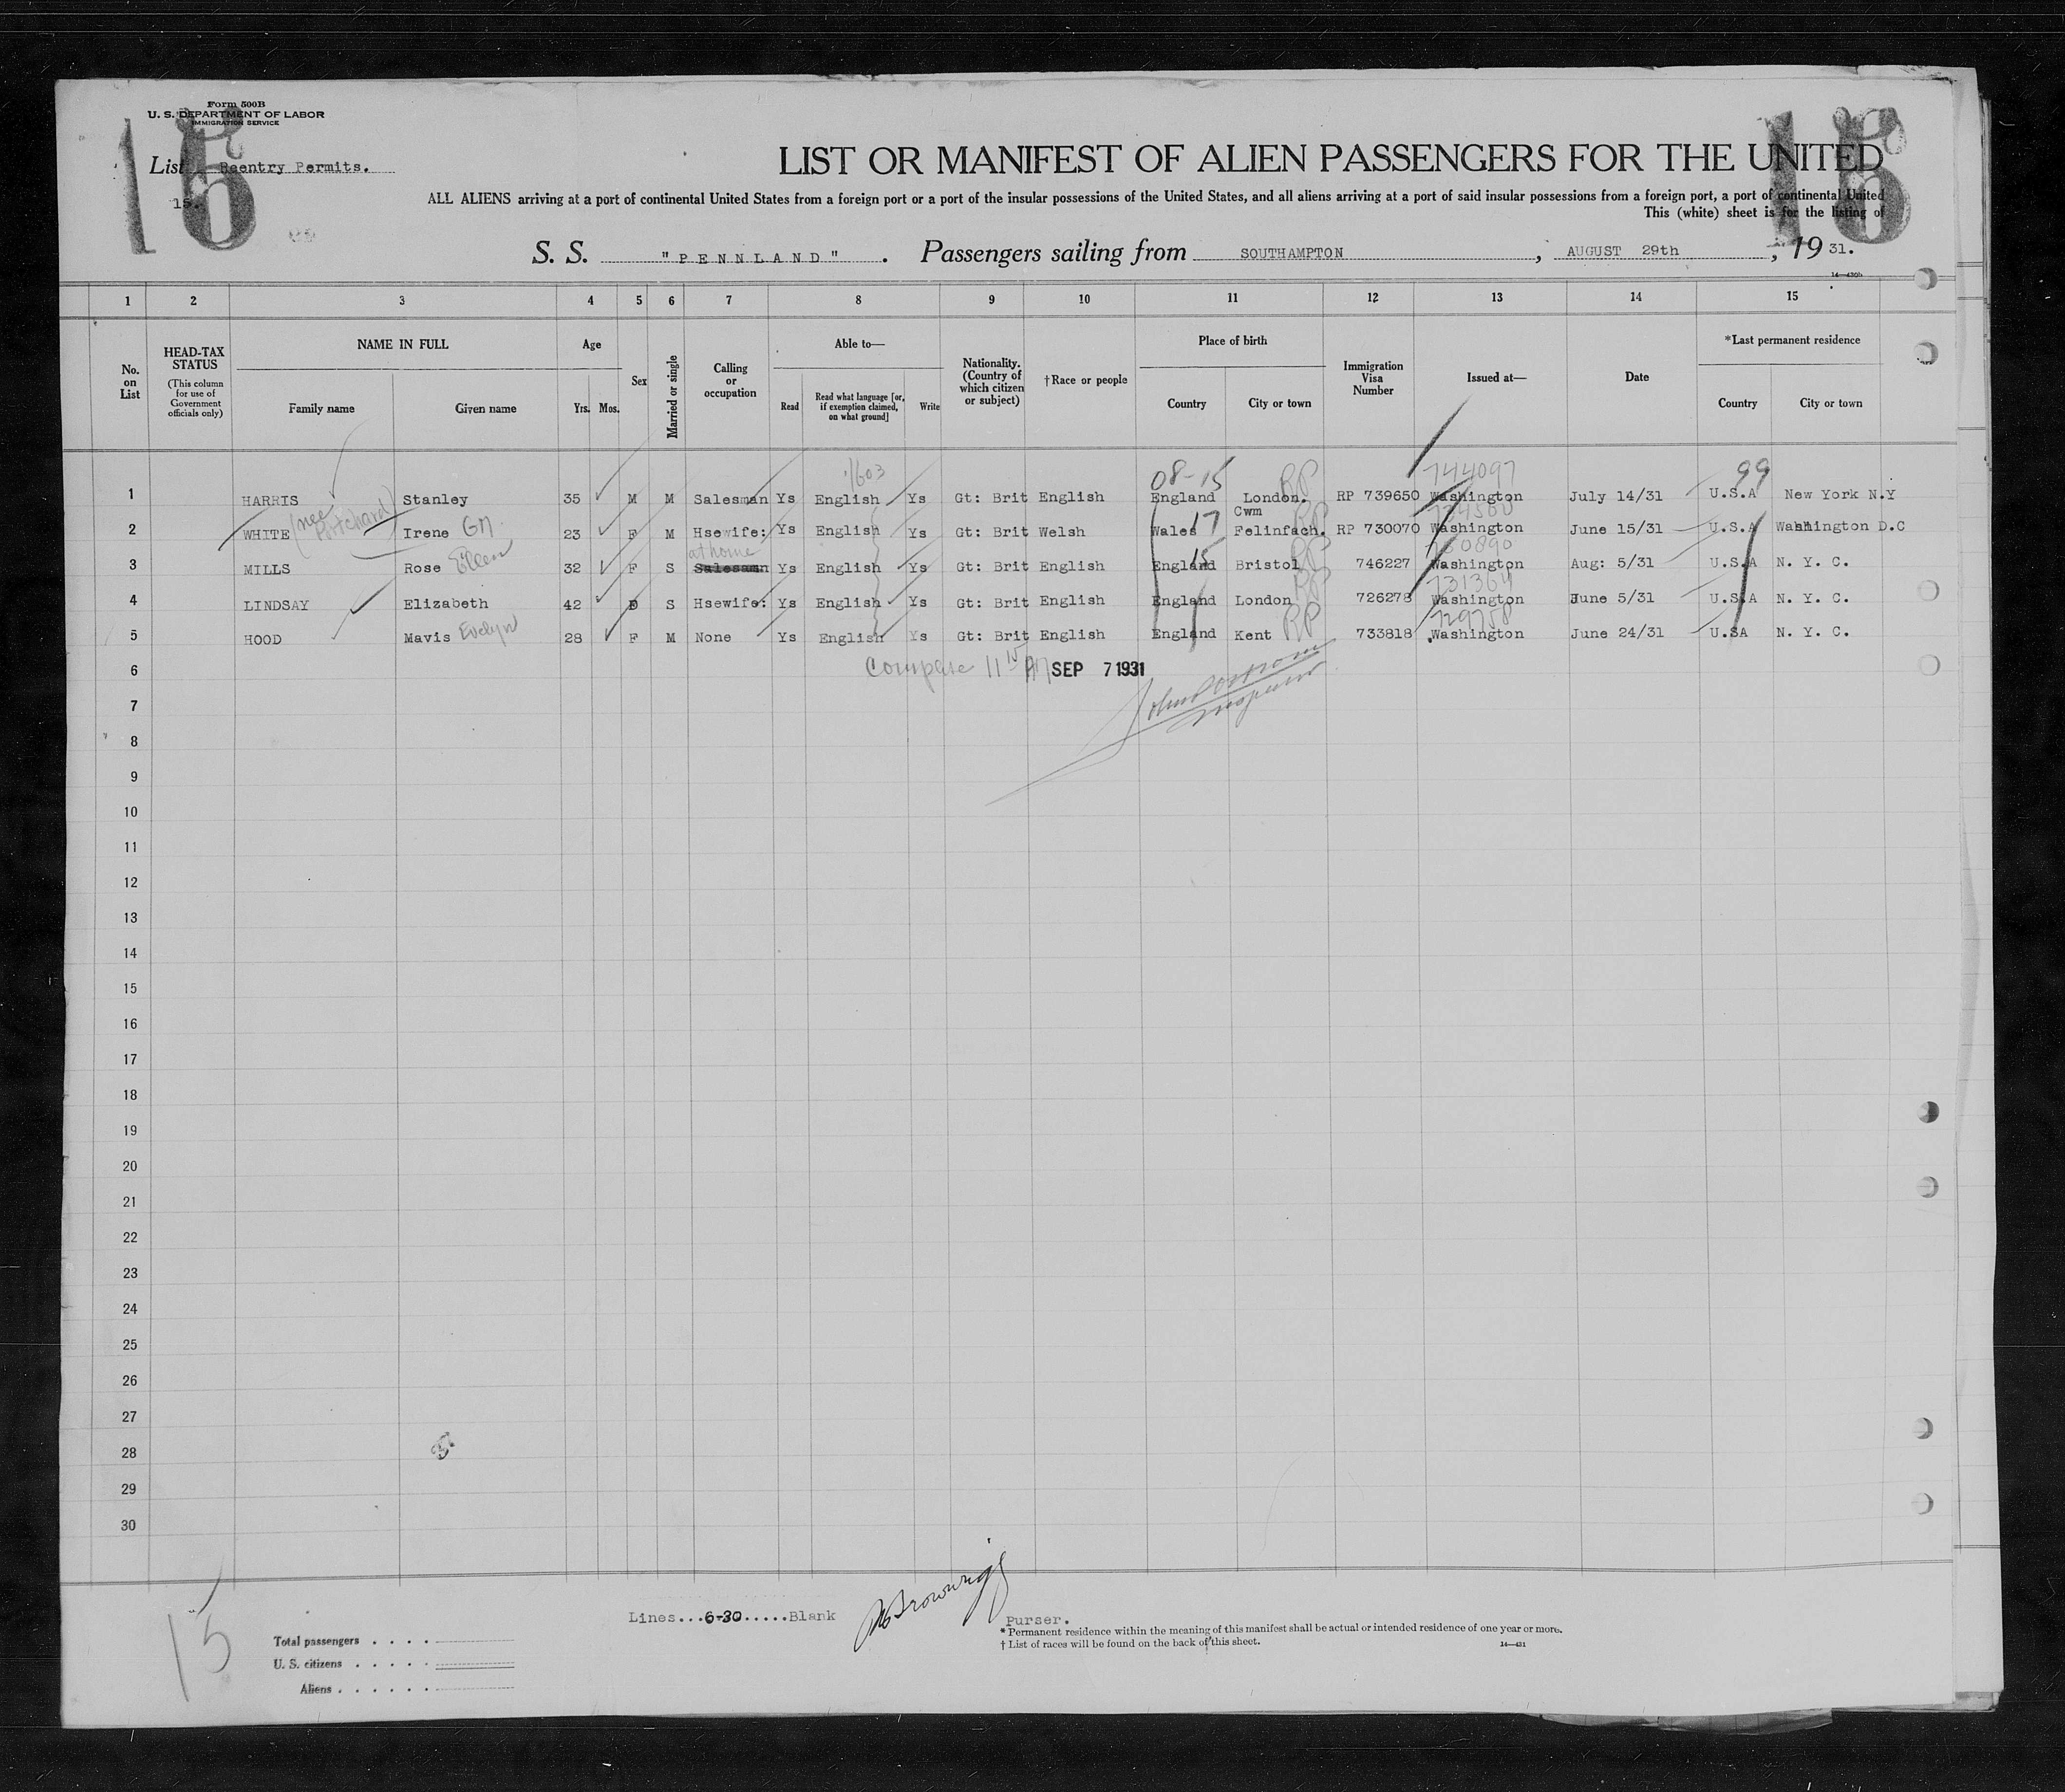 Form 500B
U. S. DEPARTMENT OF LABOR
IMMIGRATION SERVICE
15 15
List Reentry Permits.
15.
LIST OR MANIFEST OF ALIEN PASSENGERS FOR THE UNITED
ALL ALIENS arriving at a port of continental United States from a foreign port or a port of the insular possessions of the United States, and all aliens arriving at a port of said insular possessions from a foreign port, a port of continental United
This (white) sheet is for the listing of
S. S. "PENNLAND". Passengers sailing from SOUTHAMPTON, AUGUST 29th, 1931.
14—430b
1 2 3 4 5 6 7 8 9 10 11 12 13 14 15
No. on List
HEAD-TAX STATUS (This column for use of Government officials only)
NAME IN FULL Family name Given name
Age Yrs. Mos.
Sex
Married or single
Calling or occupation
Able to— Read Read what language [or, if exemption claimed, on what ground] Write
Nationality. (Country of which citizen or subject)
†Race or people
Place of birth Country City or town
Immigration Visa Number
Issued at—
Date
*Last permanent residence Country City or town
1603 08-15 RP 744097 99
1 HARRIS Stanley 35 M M Salesman Ys English Ys Gt: Brit English England London. RP 739650 Washington July 14/31 U.S.A New York N.Y
2 WHITE (nee Pritchard) Irene GM 23 F M Hsewife: Ys English Ys Gt: Brit Welsh Wales 17 Cwm Felinfach. RP RP 730070 Washington June 15/31 U.S.A Washington D.C
at home 15 RP 750890
3 MILLS Rose Eileen 32 F S Salesman Ys English Ys Gt: Brit English England Bristol 746227 Washington Aug: 5/31 U.S.A N. Y. C.
RP 731364
4 LINDSAY Elizabeth 42 F S Hsewife: Ys English Ys Gt: Brit English England London 726278 Washington June 5/31 U.S.A N. Y. C.
RP 729758
5 HOOD Mavis Evelyn 28 F M None Ys English Ys Gt: Brit English England Kent 733818 Washington June 24/31 U.SA N. Y. C.
6 11 15 AM SEP 7 1931
7
8
9
10
11
12
13
14
15
16
17
18
19
20
21
22
23
24
25
26
27
28
29
30
Lines...6-30.....Blank
Purser.
15
Total passengers
U. S. citizens
Aliens
* Permanent residence within the meaning of this manifest shall be actual or intended residence of one year or more.
† List of races will be found on the back of this sheet.
14—431